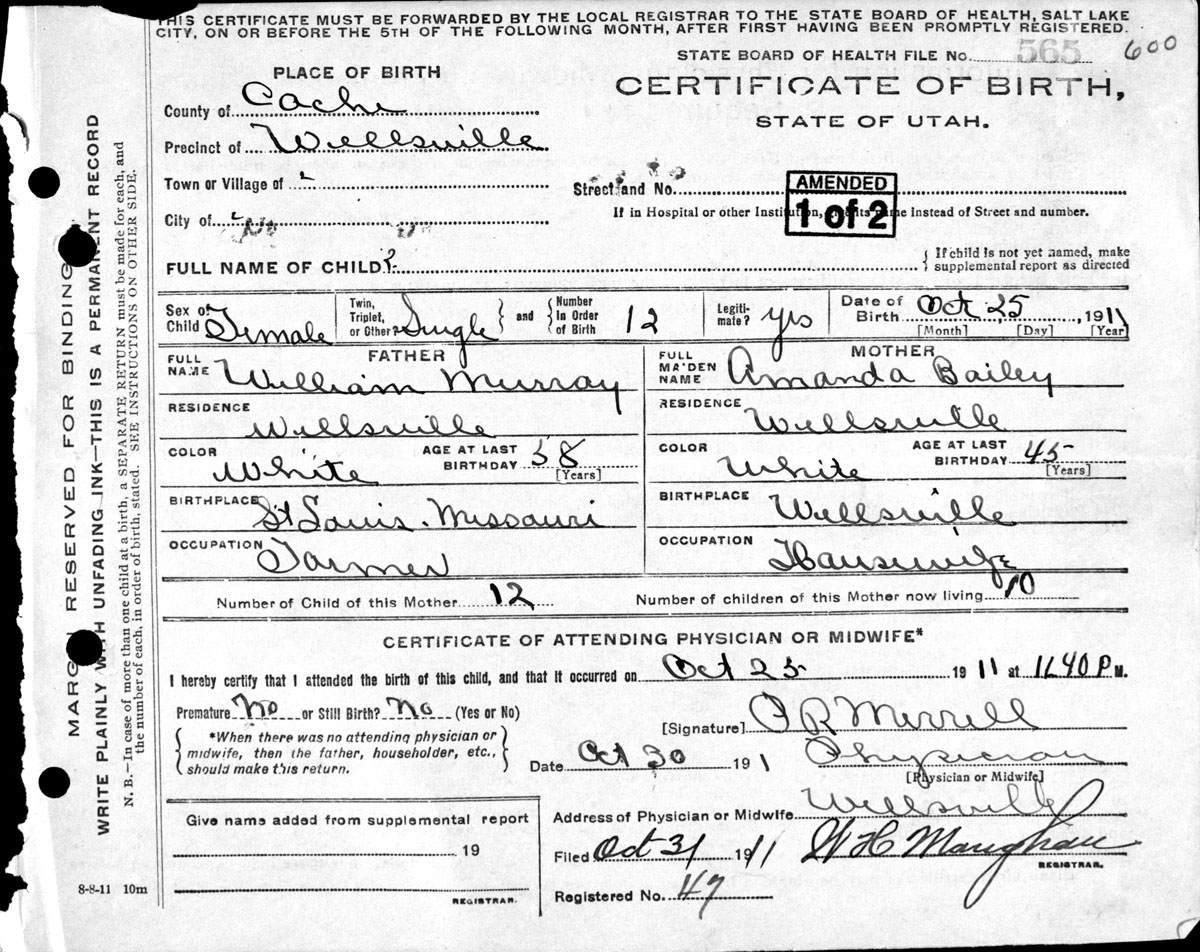 THIS CERTIFICATE MUST BE FORWARDED BY THE LOCAL REGISTRAR TO THE STATE BOARD OF HEALTH, SALT LAKE
CITY, ON OR BEFORE THE 5TH OF THE FOLLOWING MONTH, AFTER FIRST HAVING BEEN PROMPTLY REGISTERED.
STATE BOARD OF HEALTH FILE No. 565 600
PLACE OF BIRTH
CERTIFICATE OF BIRTH,
STATE OF UTAH.
County of Cache
Precinct of Wellsville
Town or Village of
Street and No.
AMENDED
1 of 2
City of
No
If in Hospital or other Institution, give its name Instead of Street and number.
FULL NAME OF CHILD ?
If child is not yet named, make
supplemental report as directed
Sex of Child Female
Twin, Triplet, or Other? Single
and
Number In Order of Birth 12
Legitimate? yes
Date of Birth Oct 25, 1911
[Month] [Day] [Year]
FATHER
FULL NAME William Murray
RESIDENCE Wellsville
COLOR White AGE AT LAST BIRTHDAY 58
[Years]
BIRTHPLACE St Louis. Missouri
OCCUPATION Farmer
MOTHER
FULL MAIDEN NAME Amanda Bailey
RESIDENCE Wellsville
COLOR White AGE AT LAST BIRTHDAY 45
[Years]
BIRTHPLACE Wellsville
OCCUPATION Housewife
Number of Child of this Mother 12 Number of children of this Mother now living 10
CERTIFICATE OF ATTENDING PHYSICIAN OR MIDWIFE*
I hereby certify that I attended the birth of this child, and that it occurred on Oct 25 1911 at 11.40 P M.
Premature No or Still Birth? No (Yes or No)
*When there was no attending physician or
midwife, then the father, householder, etc.,
should make this return.
[Signature] O R Merrill
Date Oct 30 191 1 Physician
[Physician or Midwife]
Address of Physician or Midwife Wellsville
Filed Oct 31 1911 W H Maughan
REGISTRAR.
Registered No. 47
Give name added from supplemental report
19
REGISTRAR.
8-8-11 10m
MARGIN RESERVED FOR BINDING
WRITE PLAINLY WITH UNFADING INK—THIS IS A PERMANENT RECORD
N. B.—In case of more than one child at a birth, a SEPARATE RETURN must be made for each, and
the number of each, in order of birth, stated. SEE INSTRUCTIONS ON OTHER SIDE.